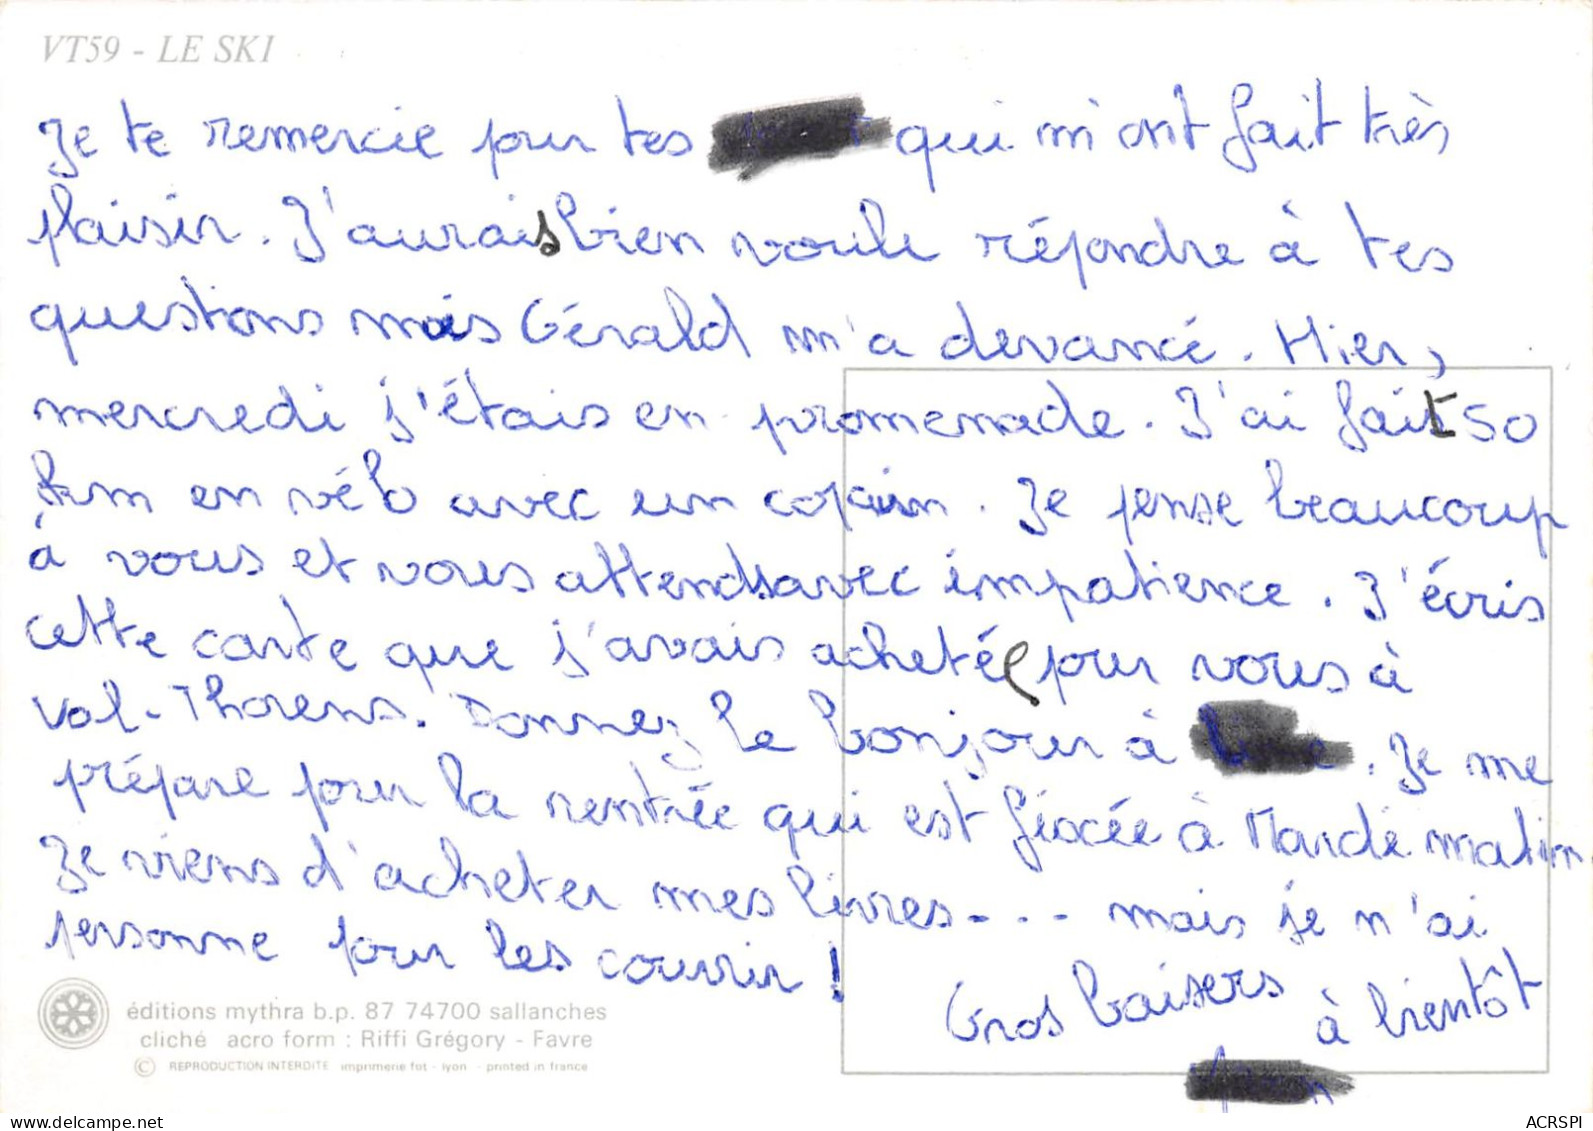 VT59 - LE SKI
Je te remercie pour tes qui m'ont fait très
plaisir. J'aurais bien voulu répondre à tes
questions mais Gérald m'a devancé. Hier,
mercredi j'étais en promenade. J'ai fait 50
km en vélo avec un copain. Je pense beaucoup
à vous et vous attends avec impatience. J'écris
cette carte que j'avais achetée pour vous à
Val-Thorens. Donnez le bonjour à . Je me
prépare pour la rentrée qui est fixée à Mardi matin.
Je viens d'acheter mes livres - - - mais je n'ai
personne pour les couvrir !
Gros baisers à bientôt
éditions mythra b.p. 87 74700 sallanches
cliché acro form : Riffi Grégory - Favre
© REPRODUCTION INTERDITE imprimerie fot - lyon - printed in france
www.delcampe.net
ACRSPI